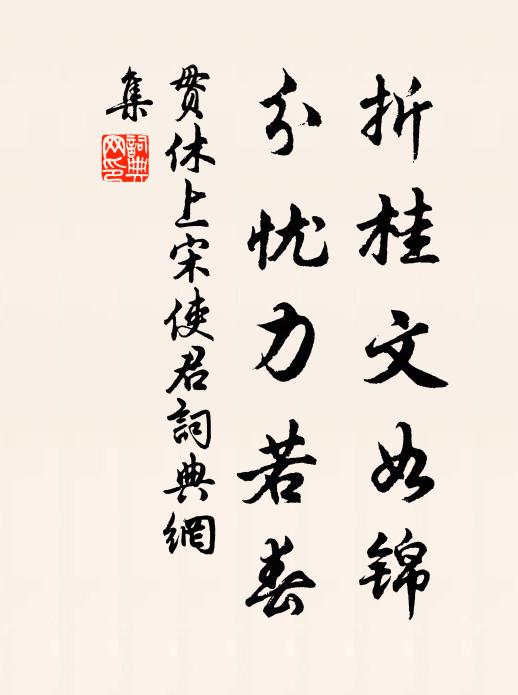 折桂文如锦
分忧力若春
貫休上宋使君詞典網
集
詞典
网印